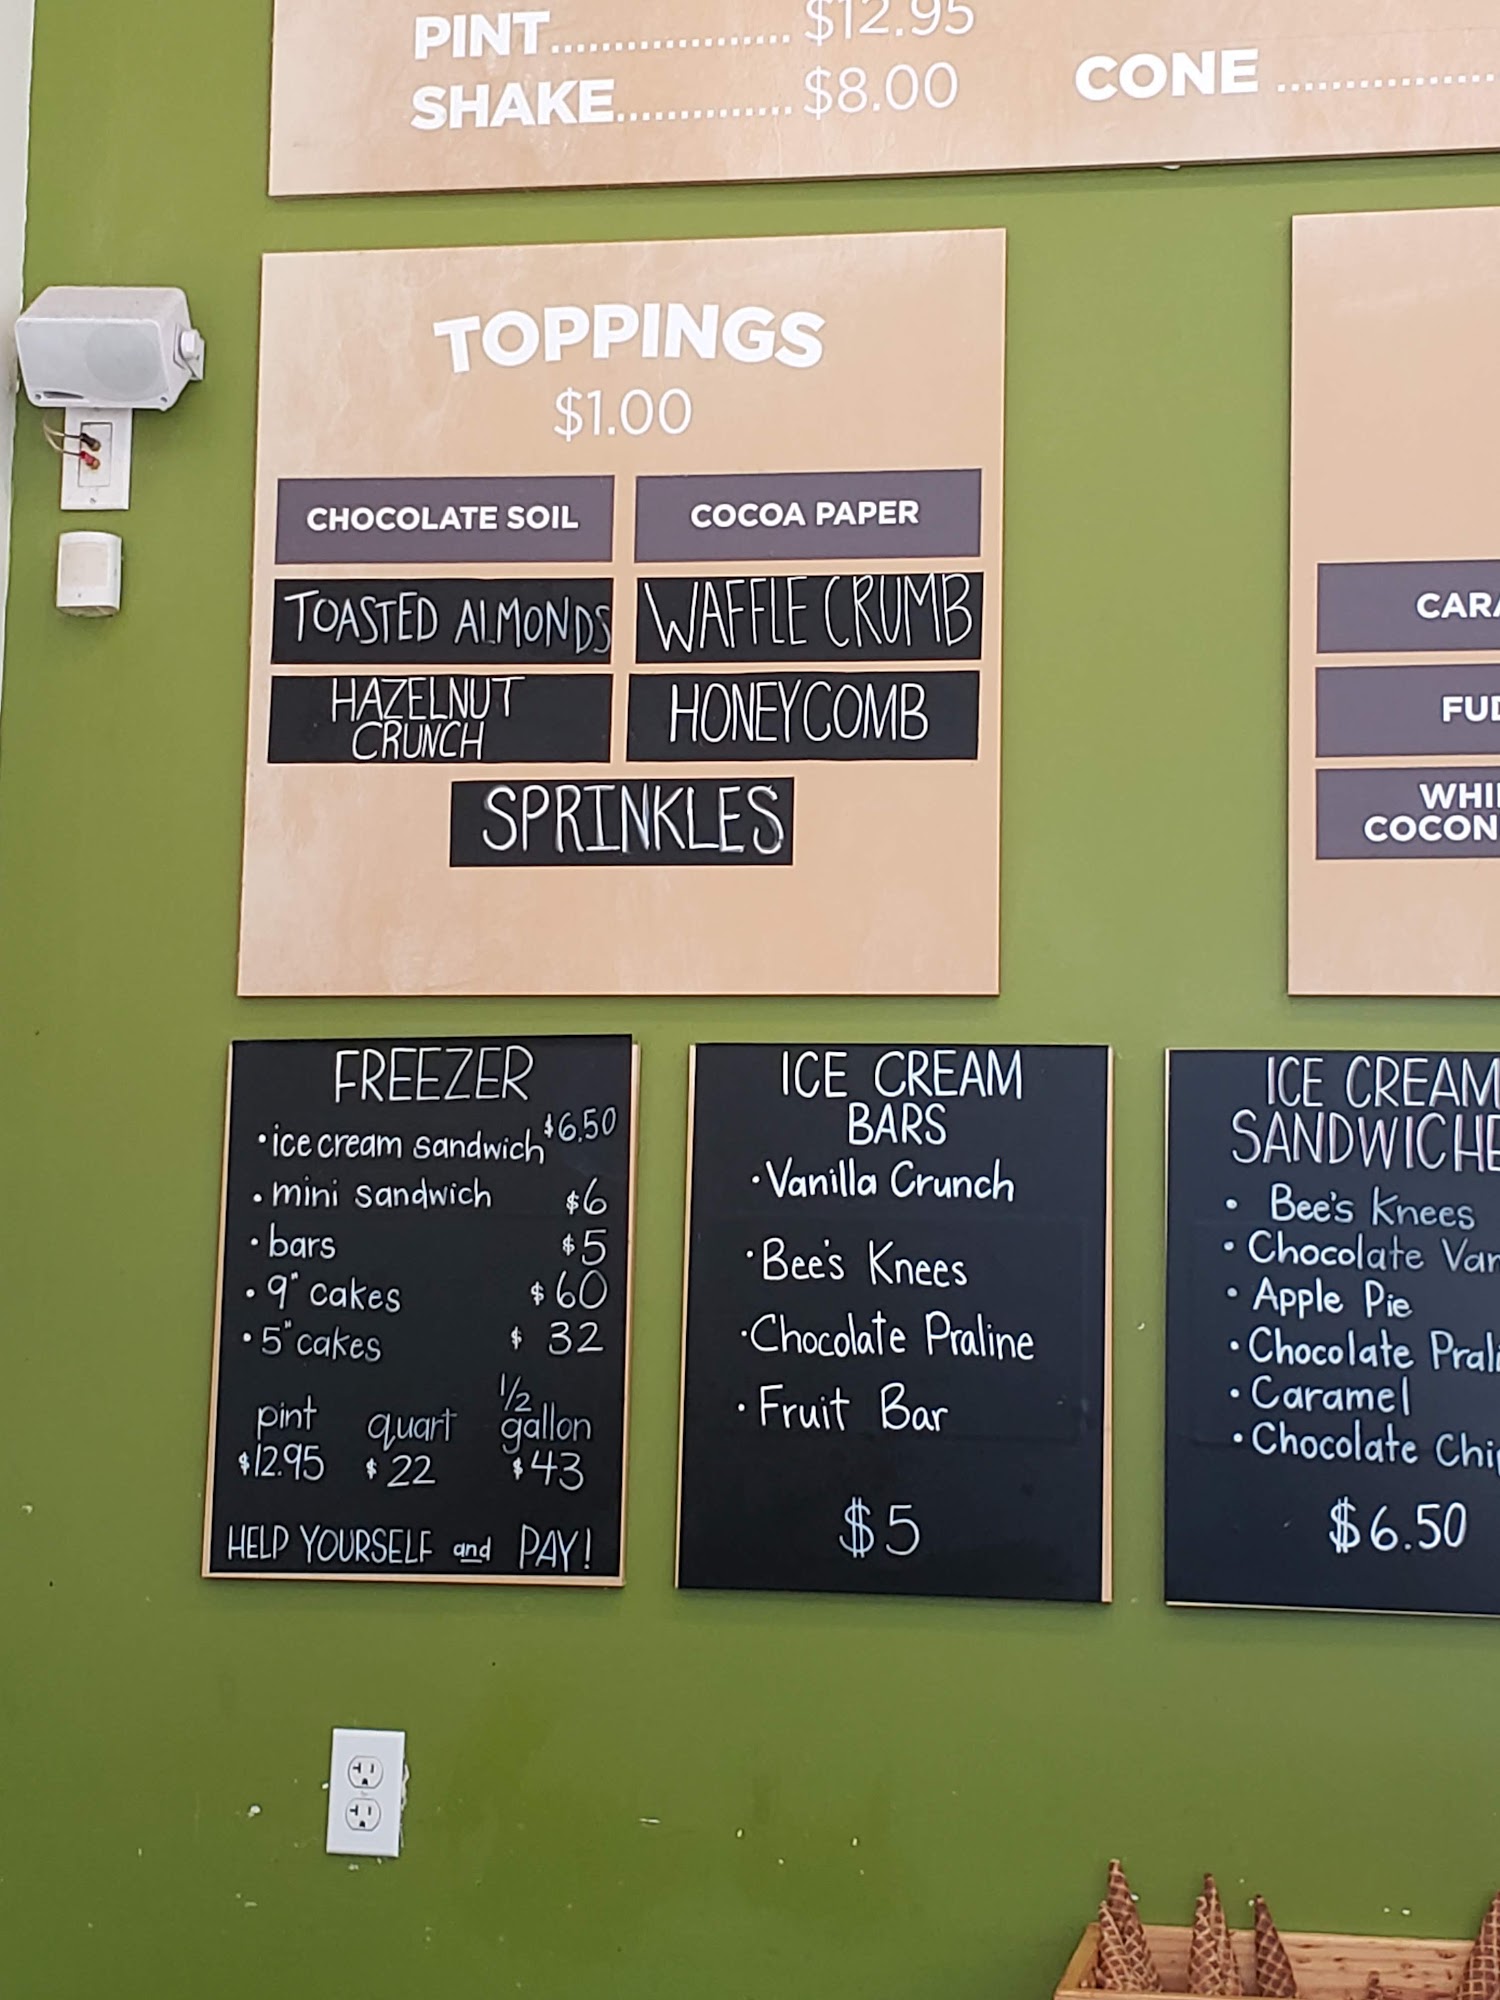 PINT................... $12.95
SHAKE.............. $8.00
CONE ................
TOPPINGS
$1.00
CHOCOLATE SOIL
COCOA PAPER
TOASTED ALMONDS
WAFFLE CRUMB
HAZELNUT
CRUNCH
HONEYCOMB
SPRINKLES
FREEZER
• ice cream sandwich $6.50
• mini sandwich $6
• bars $5
• 9" cakes $60
• 5" cakes $32
pint quart 1/2 gallon
$12.95 $22 $43
HELP YOURSELF and PAY!
ICE CREAM
BARS
• Vanilla Crunch
• Bee's Knees
• Chocolate Praline
• Fruit Bar
$5
ICE CREAM
• Bee's Knees
• Chocolate
• Apple Pie
• Chocolate
• Caramel
• Chocolate
$6.50